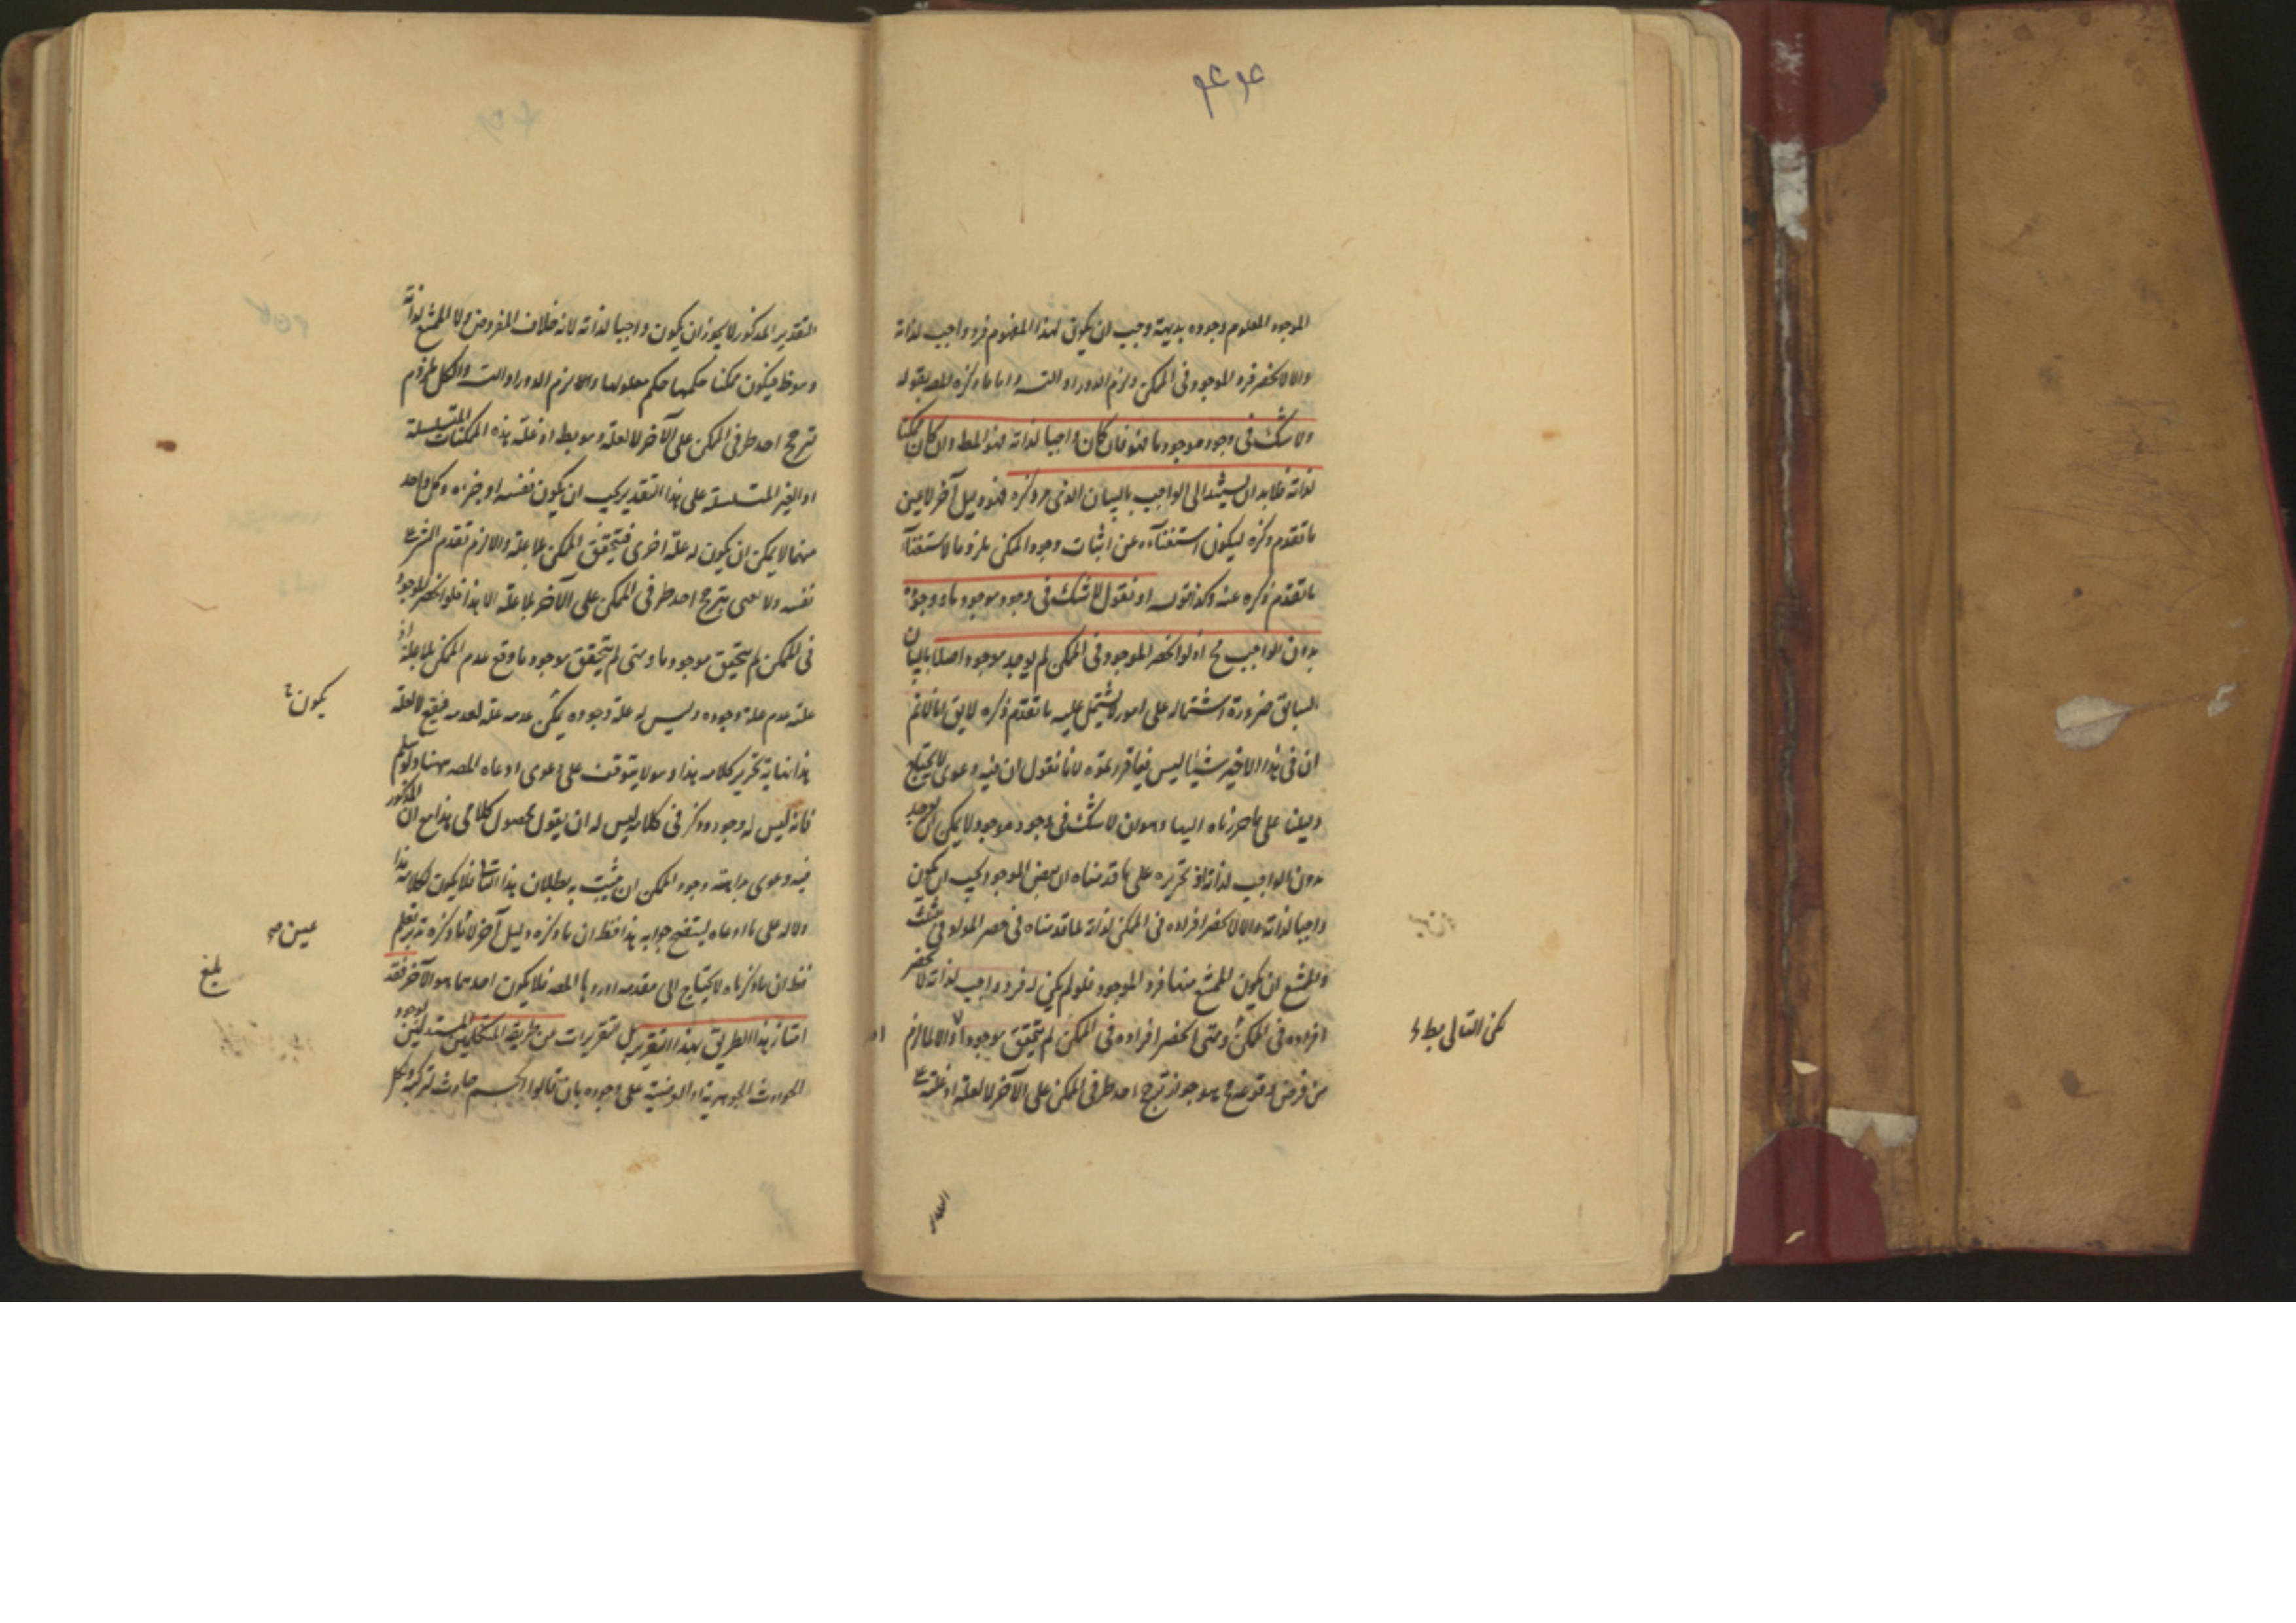 الموجود المعلوم وجوده بديهة وجب ان يكون لهذا المفهوم فرد واجب لذاته
والا لانحصر فرد الموجود فى الممكن ولزم الدور او التسـ واما ما ذكره المصـ بقوله
ولا شك فى وجود موجود ما فهو فان كان واجبا لذاته فهو المط وان كان ممكنا
لذاته فلا بد ان يستند الى الواجب بالبيان الذى مر ذكره فهو دليل آخر لا عين
ما تقدم ذكره ليكون استغناؤه عن اثبات وجود الممكن ملزوما لاستغناء
ما تقدم ذكره عنه وكذا قوله او نقول لا شك فى وجود موجود ما ووجوده
بدون الواجب مح اذ لو انحصر الموجود فى الممكن لم يوجد موجود اصلا بالبيان
السابق ضرورة اشتماله على امور لا يشتمل عليه ما تقدم ذكره لا يق انا لا نم
ان فى هذا الاخير شيئا ليس فيما قررتموه لانا نقول ان فيه دعوى لا يحتاج
دليلنا على ما حررناه اليها وهو ان لا شك فى وجود موجود لا يمكن ان يوجد
بدون الواجب لذاته اذ تحريره على ما قدمناه ان بعض الموجود يجب ان يكون
واجبا لذاته والا لانحصر افراده فى الممكن لذاته لما قدمناه فى حصر المواد فى ثلث
والممتنع ان يكون الممتنع منها فرد الموجود فلو لم يكن له فرد واجب لذاته لانحصر
افراده فى الممكن ومتى انحصر افراده فى الممكن لم يتحقق موجود والا لما لزم
من فرض وقوعه مح وهو جواز ترجح احد طرفى الممكن على الآخر لا لعلة اذ علته
لكن التالى بط
التقدير المذكور لا يجوز ان يكون واجبا لذاته لانه خلاف المفروض ولا الممتنع لذاته
وهو ظ فيكون ممكنا حكمها حكم معلولها والا لزم الدور او التسـ والكل ملزوم
ترجح احد طرفى الممكن على الآخر لا لعلة وهو بط اذ علة هذه الممكنات المتسلسلة
او الغير المتسلسلة على هذا التقدير يجب ان يكون نفسه او جزءه وكل واحد
منهما لا يمكن ان يكون له علة اخرى فيتحقق الممكن بلا علة والا لزم تقدم الشئ على
نفسه ولا نعنى بترجح احد طرفى الممكن على الآخر بلا علة الا هذا فلو انحصر الموجود
فى الممكن لم يتحقق موجود ما ومتى لم يتحقق موجود ما وقع عدم الممكن بلا علة اذ
علة عدم علة وجوده وليس له علة وجوده يمكن عدمه علة لعدمه فيقع لا لعلة
يكون
هذا نهاية تحرير كلامه هذا وهو لا يتوقف على دعوى ادعاه المصـ ههنا ولو سلم
فانه ليس له وجود وذكر فى كلامه ليس له ان يقول محصول كلامى هذا مع ان المذكور
فيه دعوى بداهة وجود الممكن ان يثبت به بطلان هذا التالى فلا يكون لكلامه هذا
دلالة على ما ادعاه ليستفتح جوابه هذا فظ ان ما ذكره دليل آخر لا ما ذكره تدبر تعلم
عين صح
فظ ان ما ذكرناه لا يحتاج الى مقدمة اوردها المصـ فلا يكون احدهما هو الآخر فقد
بلغ
امتاز هذا الطريق بهذا التقرير بل تقريرات من طريقة المتكلمين المستدلين بوجود
الحوادث الجوهرية او العرضية على وجوده بان قالوا الجسم حادث لتركبه وكل